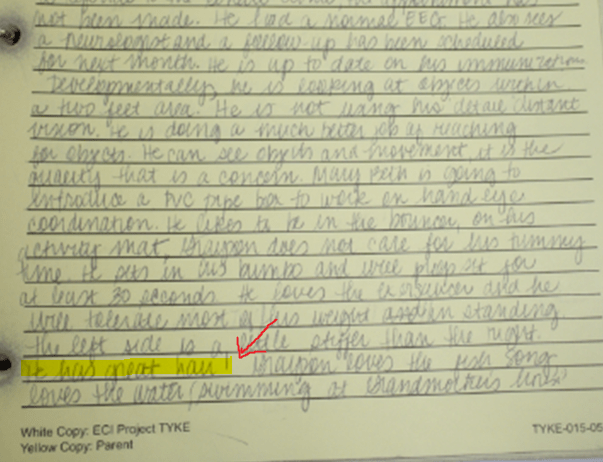 not been made. He had a normal EEG. He also sees
a neurologist and a follow-up has been scheduled
for next month. He is up to date on his immunizations.
Developmentally, he is looking at objects within
a two feet area. He is not using his distant
vision. He is doing a much better job of reaching
for objects. He can see objects and movement, it is the
quality that is a concern. Mary Beth is going to
introduce a PVC pipe box to work on hand eye
coordination. He likes to be in the bouncer, on his
activity mat, does not care for his tummy
time. He sits in his bumbo and will prop sit for
at least 30 seconds. He loves the exersaucer and he
will tolerate most of his weight in standing.
the left side is a little stiffer than the right.
He has great hair! loves the song
loves the water/swimming at Grandmother's
White Copy: ECI Project TYKE
Yellow Copy: Parent
TYKE-015-05